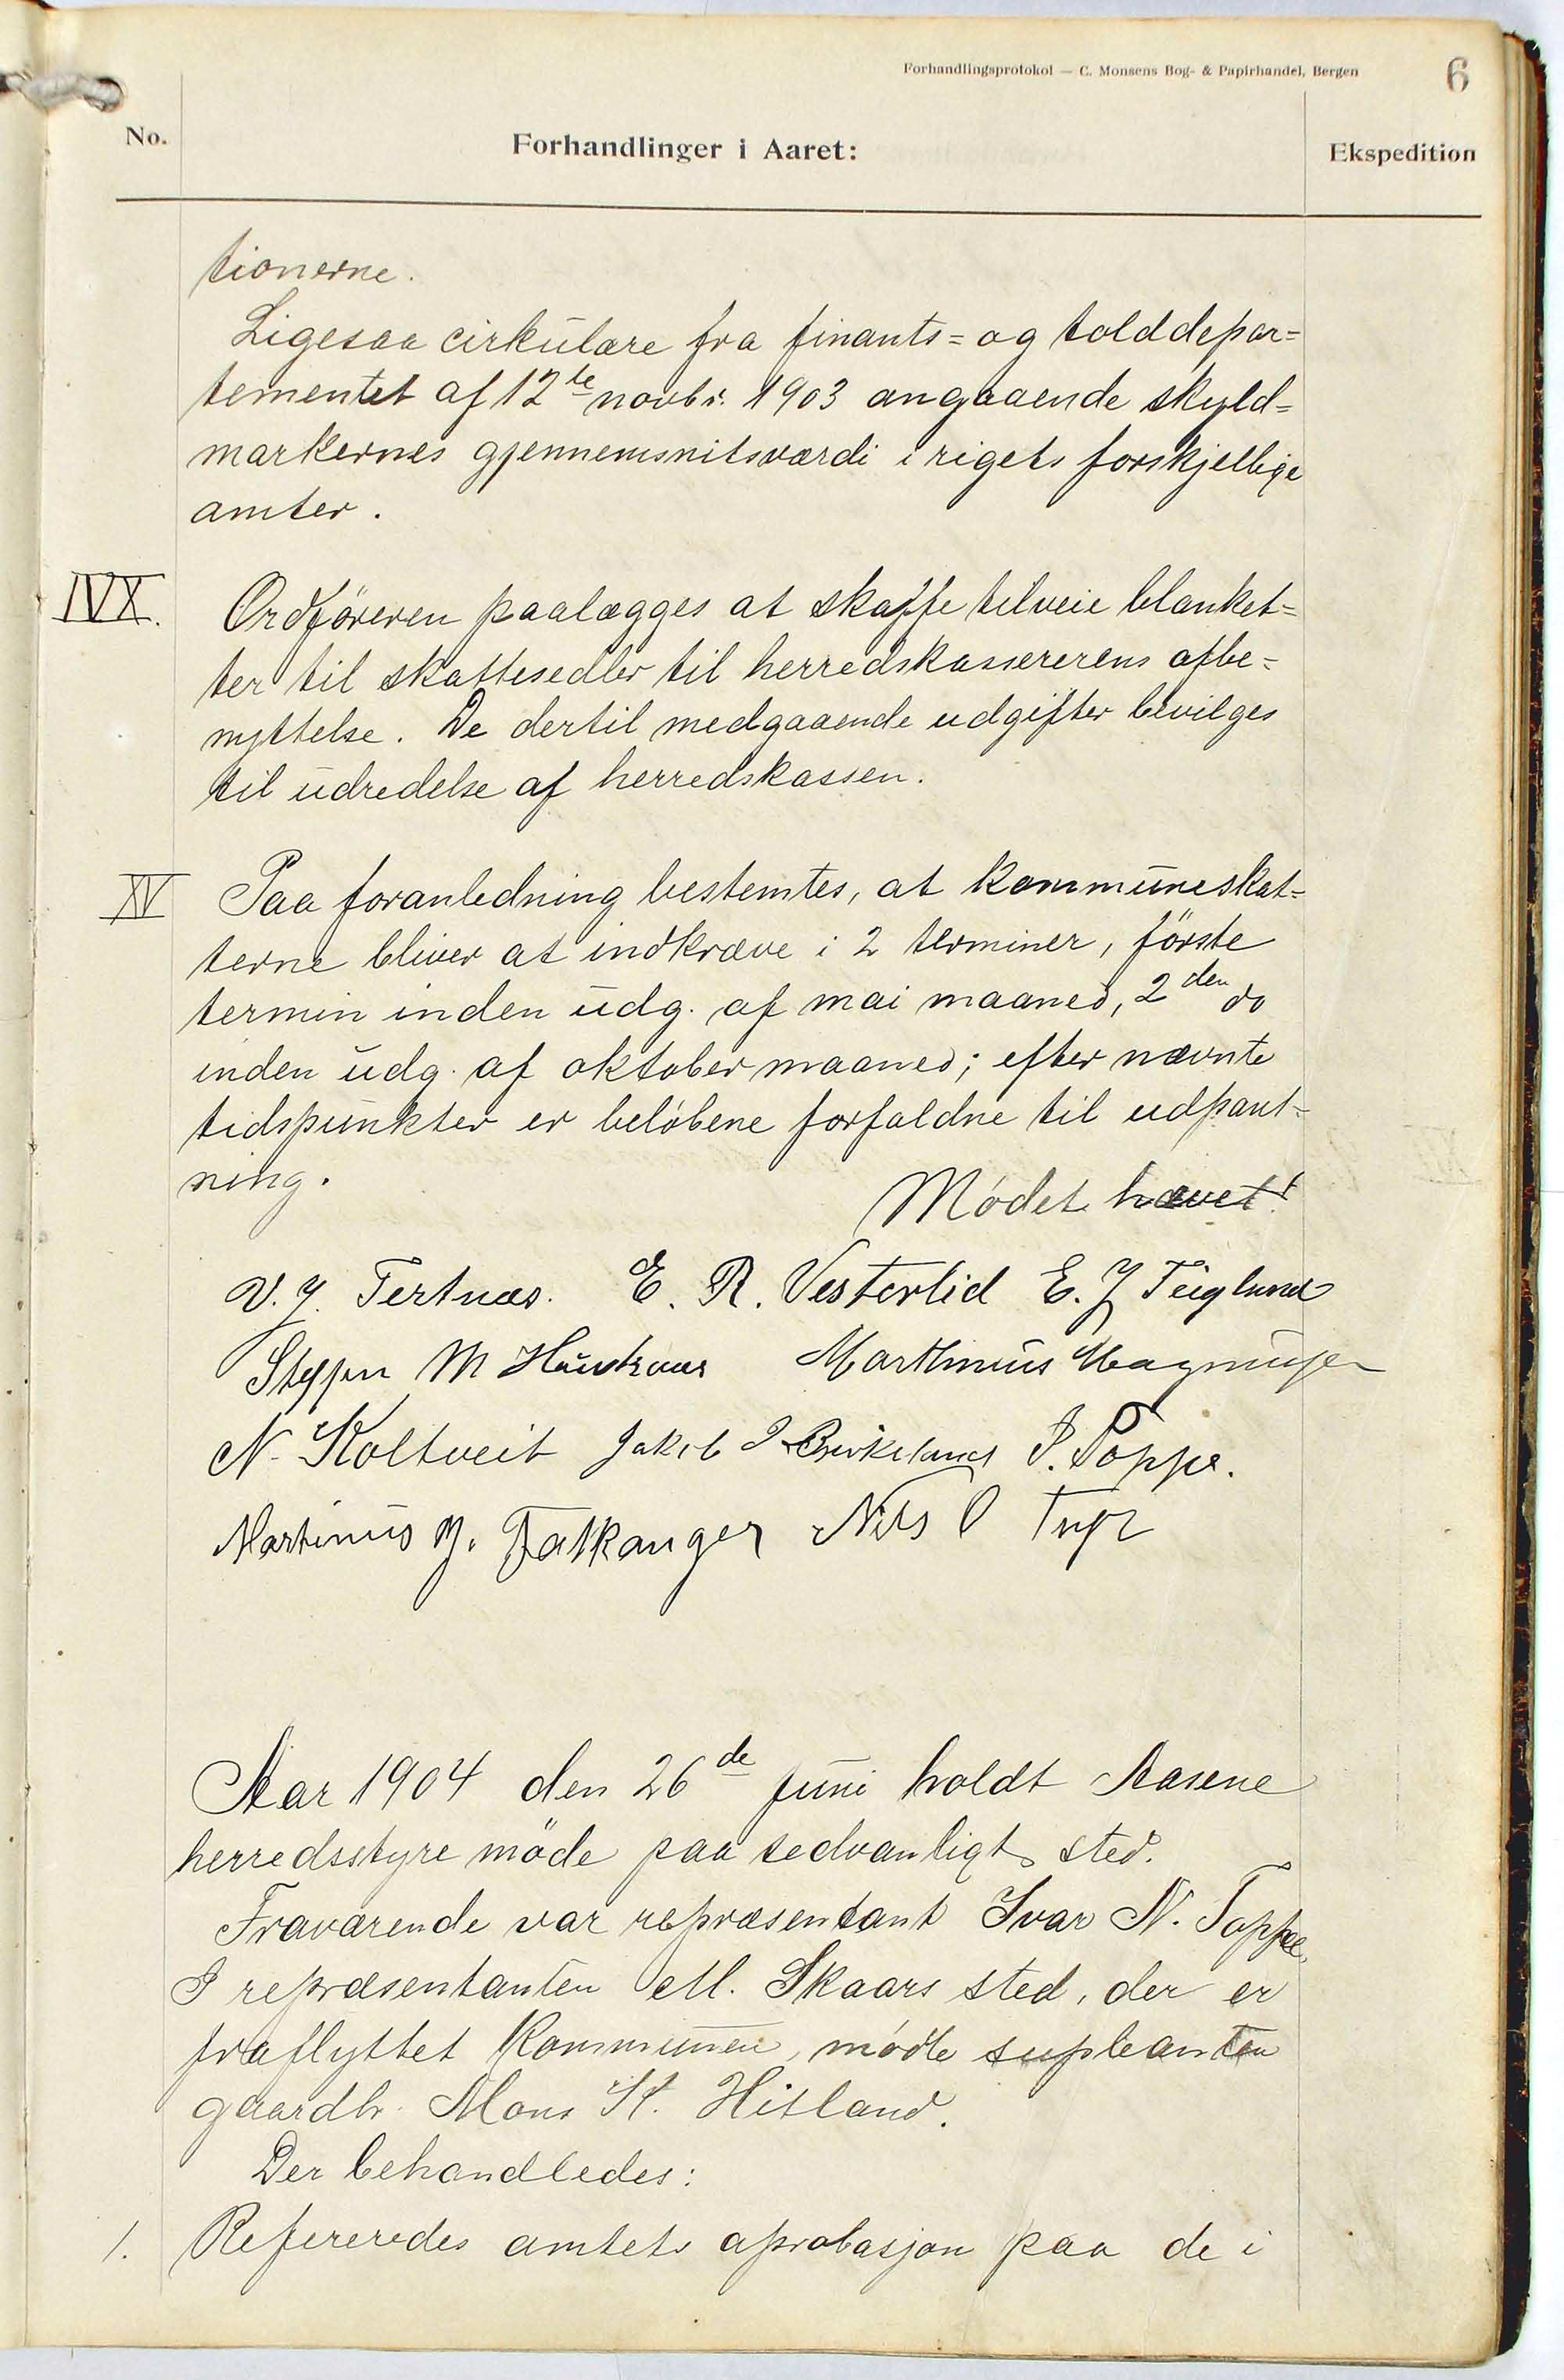 Forhandlingsprotokol — C. Monsens Bog- & Papirhandel, Bergen
6
No.
Forhandlinger i Aaret:
Ekspedition
tionerne.
Ligesaa cirkulære fra finants= og tolddepar=
tementet af 12te novbr. 1903 angaaende skyld=
markernes gjennemsnitsværdi i rigets forskjellige
amter.
IVX. Ordføreren paalægges at skaffe tilveie blanket=
ter til skattesedler til herredskassererens afbe=
nyttelse. De dertil medgaaende udgifter bevilges
til udredelse af herredskassen.
XV Paa foranledning bestemtes, at kommuneskat=
terne bliver at indkræve i 2 terminer, første
termin inden udg. af mai maaned, 2den do
inden udg. af oktober maaned; efter nævnte
tidspunkter er beløbene forfaldne til udpant=
ning.
Mødet hævet!
V. J. Tertnæs. E. R. Vesterlid E. J Teiglund
Steffen M Haukaas Marthinus Magnusen
N. Koltveit Jakob I Birkeland I. Toppe.
Martinus M. Falkanger Nils O
Aar 1904 den 26de juni holdt Aasene
herredsstyre møde paa sedvanligt sted.
Fraværende var repræsentant Ivar N. Toppe.
I repræsentanten M. Skaars sted, der er
fraflyttet kommunen, mødte supleanten
gaardbr. Mons H. Hitland.
Der behandledes:
1. Refereredes amtets aprobasjon paa de i